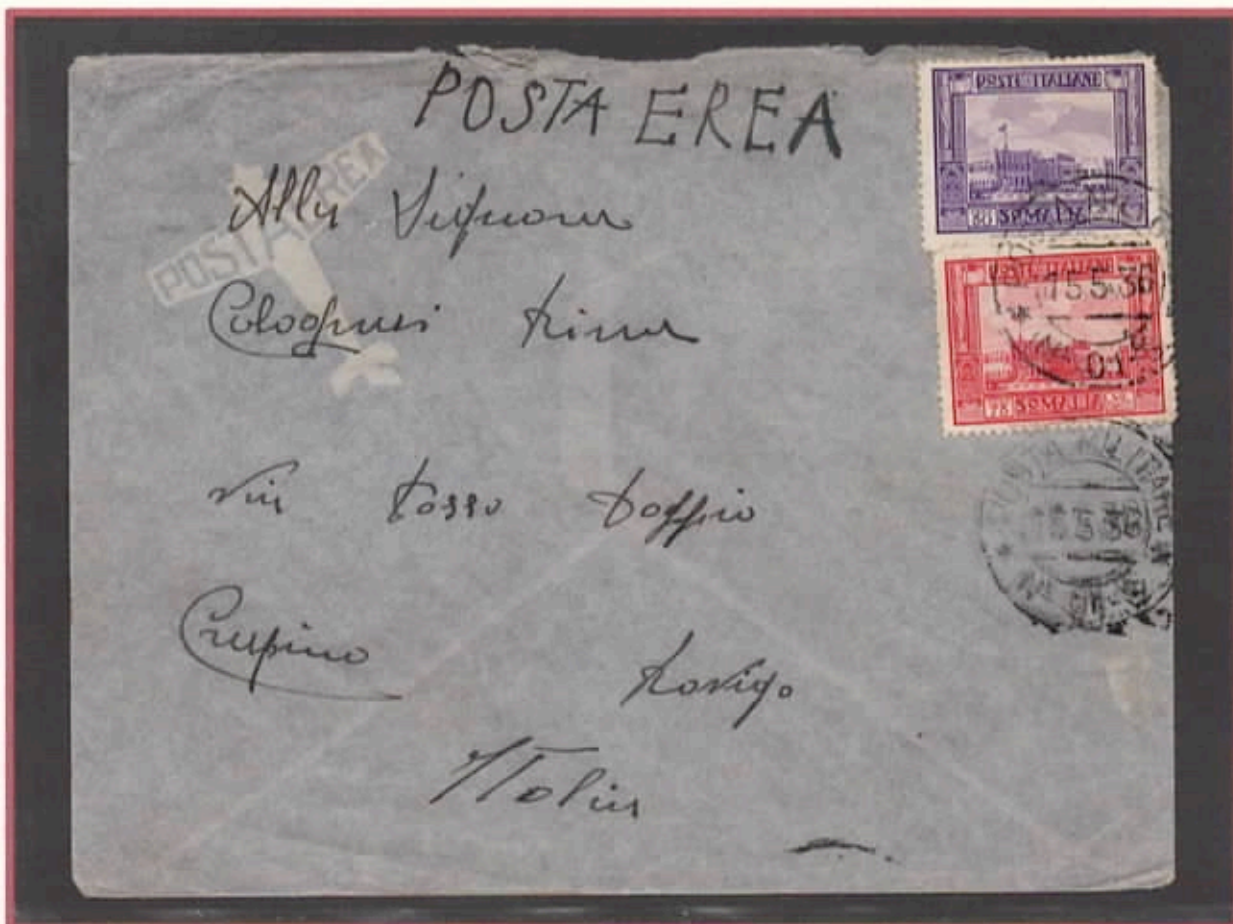 POSTA EREA
POSTA AEREA
Alla Signora
Colognesi
via Fosso Doppio
Crespino Rovigo
ITalia
POSTE ITALIANE
SOMALIA
POSTE ITALIANE
75 SOMALIA
15.5.36
POSTA MILITARE
15.5.36